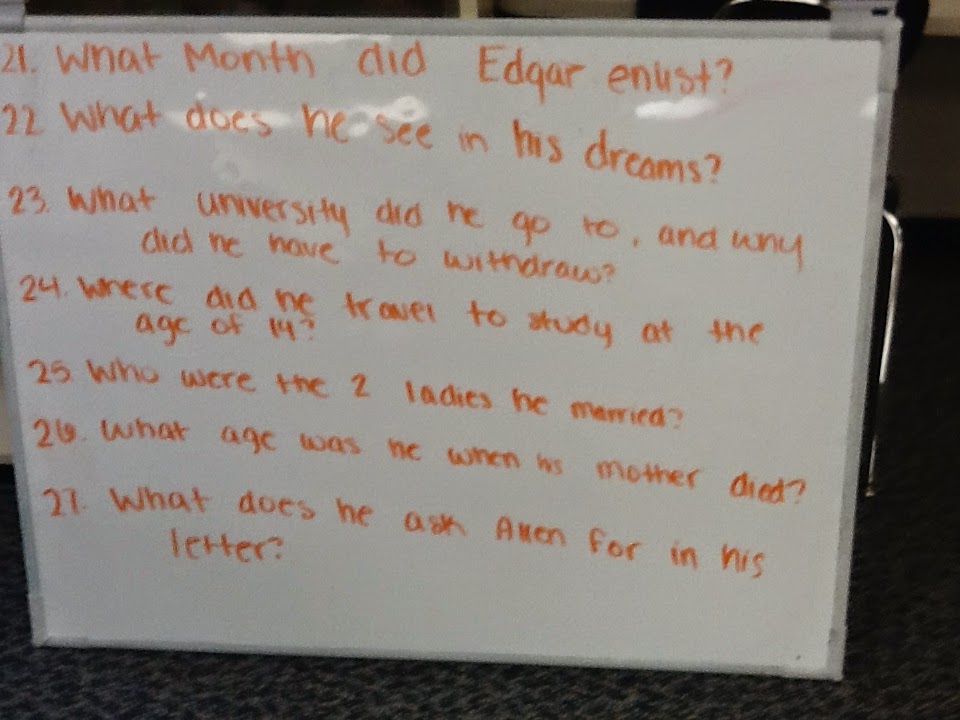 21. What Month did Edgar enlist?
22 What does he see in his dreams?
23. What university did he go to, and why
did he have to withdraw?
24. Where did he travel to study at the
age of 14?
25 Who were the 2 ladies he married?
26. What age was he when his mother died?
27. What does he ask Allen for in his
letter?